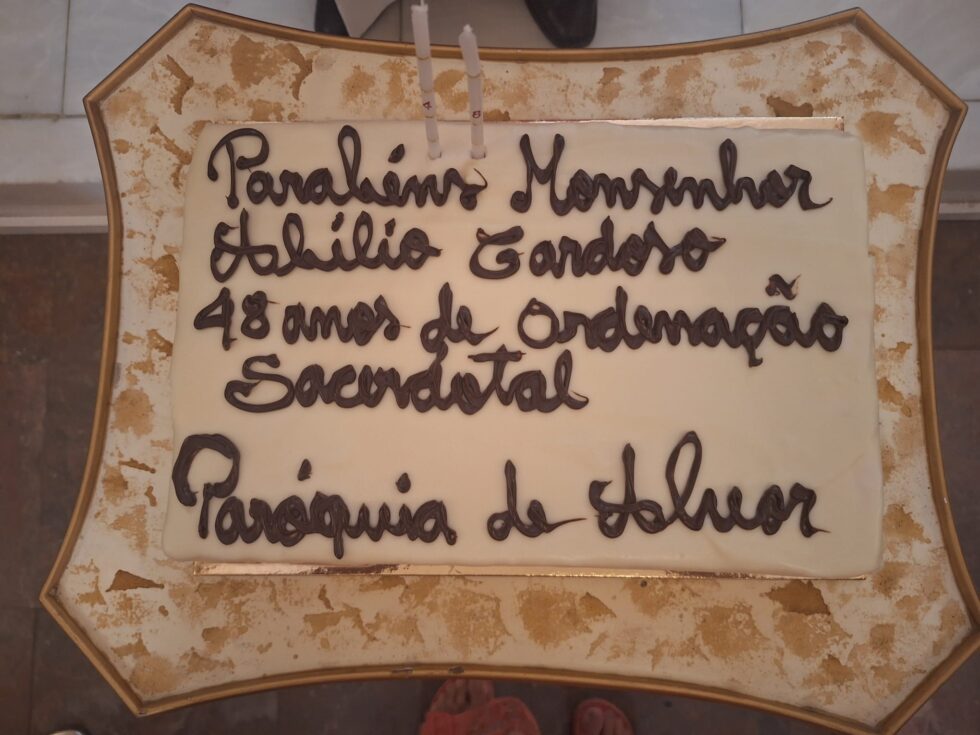 Parabéns Monsenhor
Abílio Cardoso
48 anos de Ordenação
Sacerdotal
Paróquia de Alvor
4
8